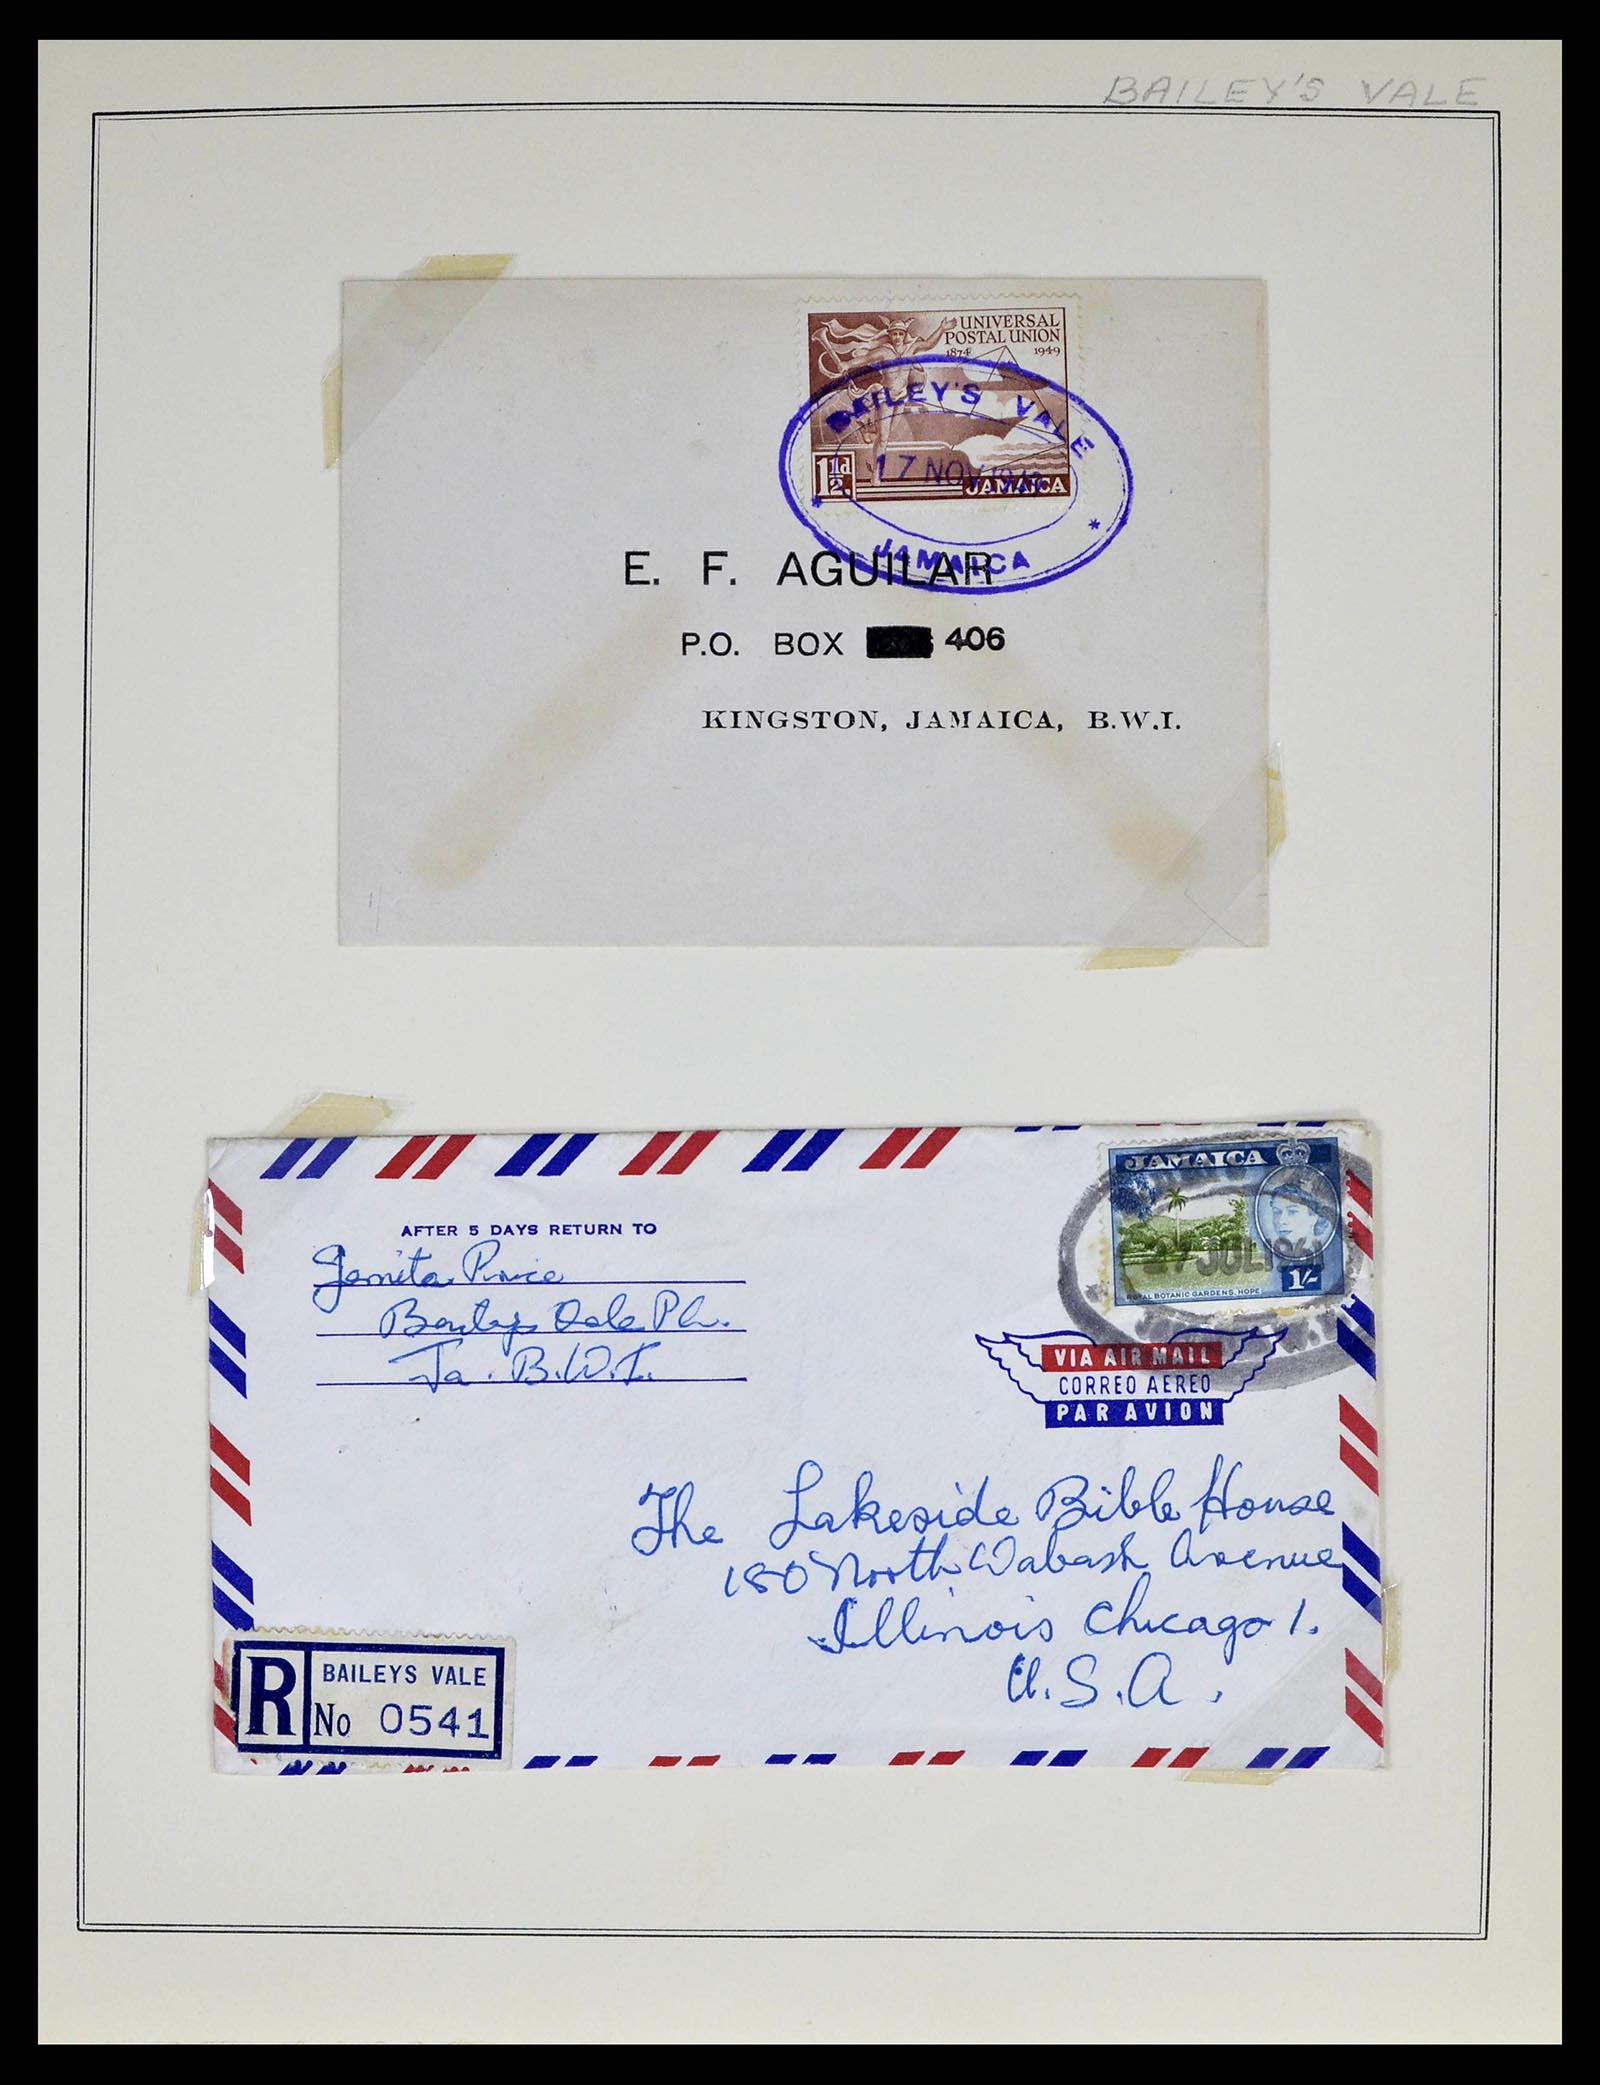 BAILEY'S VALE
UNIVERSAL
POSTAL UNION
1874 1949
BAILEY'S VALE
17 NOV 1949
1½d JAMAICA
JAMAICA
E. F. AGUILAR
P.O. BOX 406
KINGSTON, JAMAICA, B.W.I.
JAMAICA
27 JUL 1961
1/-
ROYAL BOTANIC GARDENS, HOPE
AFTER 5 DAYS RETURN TO
Jenita Price
Baileys Vale P.O.
Ja. B.W.I.
VIA AIR MAIL
CORREO AEREO
PAR AVION
The Lakeside Bible House
180 North Wabash Avenue
Illinois Chicago 1.
U.S.A.
R BAILEYS VALE
No 0541